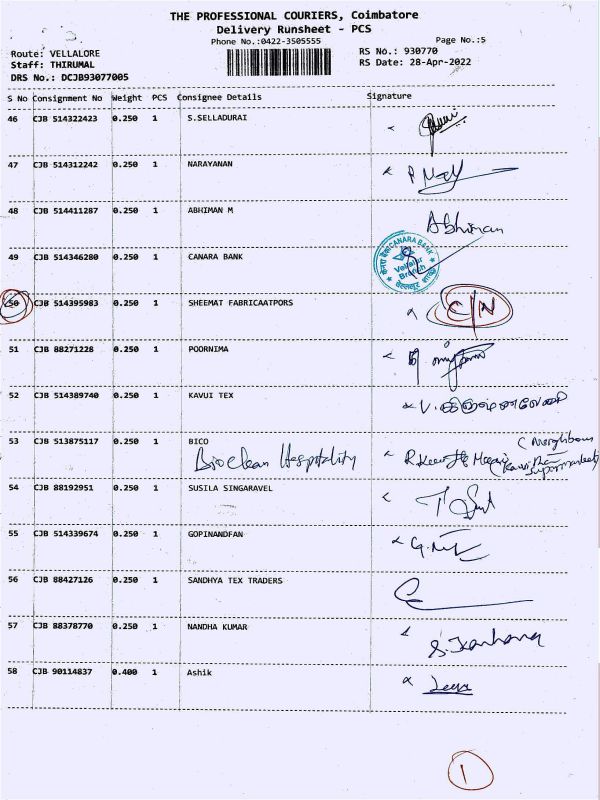 THE PROFESSIONAL COURIERS, Coimbatore
Delivery Runsheet - PCS
Phone No.:0422-3505555
Page No.:5
Route: VELLALORE
RS No.: 930770
Staff: THIRUMAL
RS Date: 28-Apr-2022
DRS No.: DCJB93077005
S No Consignment No Weight PCS Consignee Details Signature
46 CJB 514322423 0.250 1 S.SELLADURAI
47 CJB 514312242 0.250 1 NARAYANAN
48 CJB 514411287 0.250 1 ABHIMAN M
Abhiman
49 CJB 514346280 0.250 1 CANARA BANK
CANARA BANK
Vellalur
Branch
50 CJB 514395983 0.250 1 SHEEMAT FABRICAATPORS
C/N
51 CJB 88271228 0.250 1 POORNIMA
52 CJB 514389740 0.250 1 KAVUI TEX
53 CJB 513875117 0.250 1 BICO
Bioclean Hospitality
54 CJB 88192951 0.250 1 SUSILA SINGARAVEL
55 CJB 514339674 0.250 1 GOPINANDFAN
56 CJB 88427126 0.250 1 SANDHYA TEX TRADERS
57 CJB 88378770 0.250 1 NANDHA KUMAR
58 CJB 90114837 0.400 1 Ashik
1